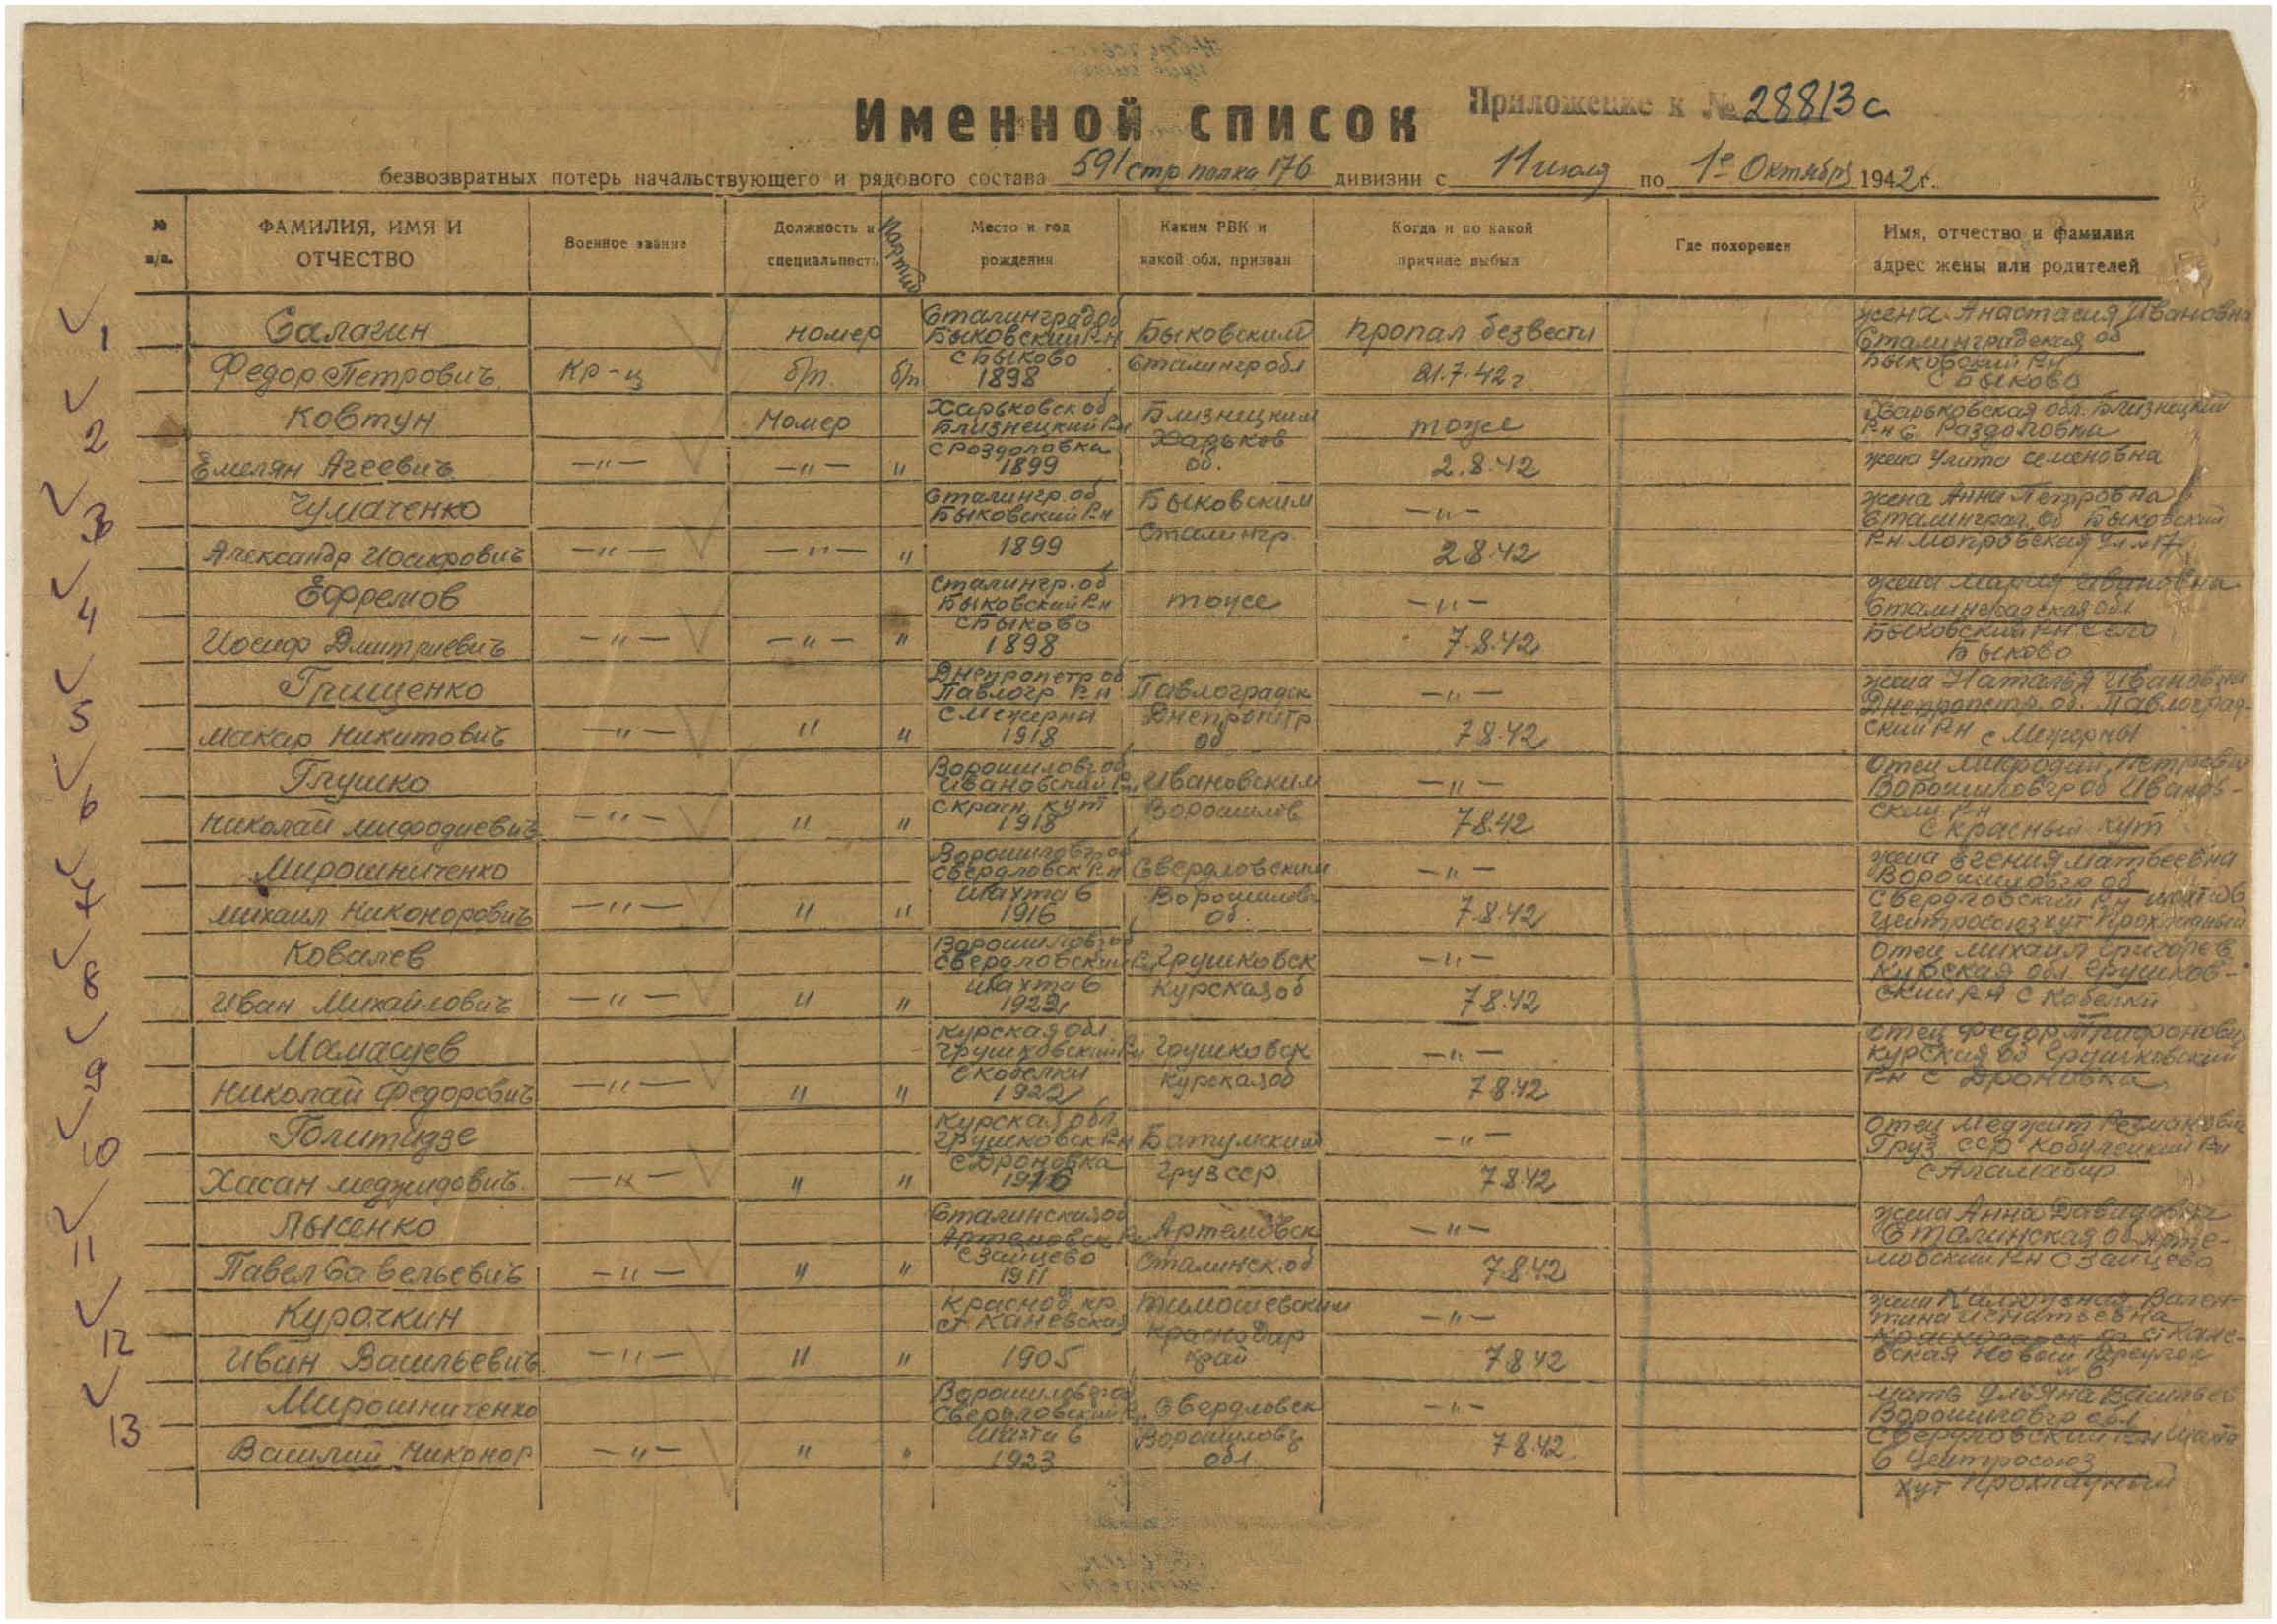 Именной список
Приложение к № 28813с
безвозвратных потерь начальствующего и рядового состава 591 стр полка 176 дивизии с 11 июля по 1е Октября 1942 г.
№ п/п.
ФАМИЛИЯ, ИМЯ И ОТЧЕСТВО
Военное звание
Должность и специальность
Место и год рождения
Каким РВК и какой обл. призван
Когда и по какой причине выбыл
Где похоронен
Имя, отчество и фамилия адрес жены или родителей
1
Салагин
Федор Петрович
Кр-ц
номер
б/п.
б/п
Сталинград об
Быковский Р-н
с Быково
1898
Быковским
Сталингр обл
пропал безвести
21.7.42 г
жена Анастасия Ивановна
Сталинградская об
Быковский Р-н
с Быково
2
Ковтун
Емелян Агеевич
—"—
Номер
—"—
"
Харьковск об
Близнецкий Р-н
с Роздоловка
1899
Близнецким
Харьков
об.
тоже
2.8.42
Харьковская обл. Близнецкий
Р-н с Раздоловка
жена Улита Семеновна
3
Чумаченко
Александр Иосифович
—"—
—"—
"
Сталингр. об
Быковский Р-н
1899
Быковским
Сталингр.
—"—
2.8.42
жена Анна Петровна
Сталинград. об Быковский
4
Ефремов
Иосиф Дмитриевич
—"—
—"—
"
Сталингр. об
Быковский Р-н
с Быково
1898
тоже
—"—
7.8.42
жена Мария Ивановна
Сталинградская обл
Быковский Р-н село
Быково
5
Грищенко
Макар Никитович
—"—
"
"
Днепропетр об
Павлогр. Р-н
1918
Павлоградск
Днепропетр
об
—"—
7.8.42
жена Наталья Ивановна
Днепропетр. об. Павлоград-
ский Р-н
6
Глушко
Николай Мифодиевич
—"—
"
"
Ворошиловгр об
Ивановский Р-н
с Красн. кут
1918
Ивановским
Ворошилов
—"—
7.8.42
Отец Мифодий Петрович
Ворошиловгр об Иванов-
ский Р-н
с Красный кут
7
Мирошниченко
Михаил Никонорович
—"—
"
"
Ворошиловгр об
Свердловск Р-н
Шахта 6
1916
Свердловским
Ворошиловг
об.
—"—
7.8.42
жена Евгения Матвеевна
Ворошиловгр об
Свердловский Р-н шахта 6
Центросоюз хут Прохладный
8
Ковалев
Иван Михайлович
—"—
"
"
Ворошиловгр об
Свердловский Р-н
Шахта 6
1922
Грушковск
Курская об
—"—
7.8.42
Отец Михаил Григорев
Курская обл Грушков-
ский Р-н с Кобелки
9
Мамасуев
Николай Федорович
—"—
"
"
Курская обл
Грушковский Р-н
с Кобелки
1922
Грушковск
Курская об
—"—
7.8.42
отец Федор Трифонович
Курская об Грушковский
Р-н с Дроновка
10
Голитидзе
Хасан Меджидович
—"—
"
"
Курская обл
Грушковск Р-н
с Дроновка
1916
Батумским
Груз сср
—"—
7.8.42
Отец Меджит
Груз ССР Кобулецкий Р-н
11
Лысенко
Павел Савельевич
—"—
"
"
Сталинская об
Артемовск Р-н
с Зайцево
1911
Артемовск
Сталинск. об
—"—
7.8.42
жена Анна Давидовна
Сталинская об Арте-
мовский Р-н с Зайцево
12
Курочкин
Иван Васильевич
—"—
"
"
Краснод. кр.
ст Каневская
1905
Тимошевским
Краснодар
край
—"—
7.8.42
жена Вален-
тина Игнатьевна
Краснодарск кр. ст Кане-
вская Новый переулок
№ 6
13
Мирошниченко
Василий Никонор
—"—
"
"
Ворошиловград
Свердловский Р-н
Шахта 6
1923
Свердловск
Ворошиловг
обл
—"—
7.8.42
мать Ульяна Васильев
Ворошиловгр обл
Свердловский Р-н Шахта
6 Центросоюз
хут Прохладный